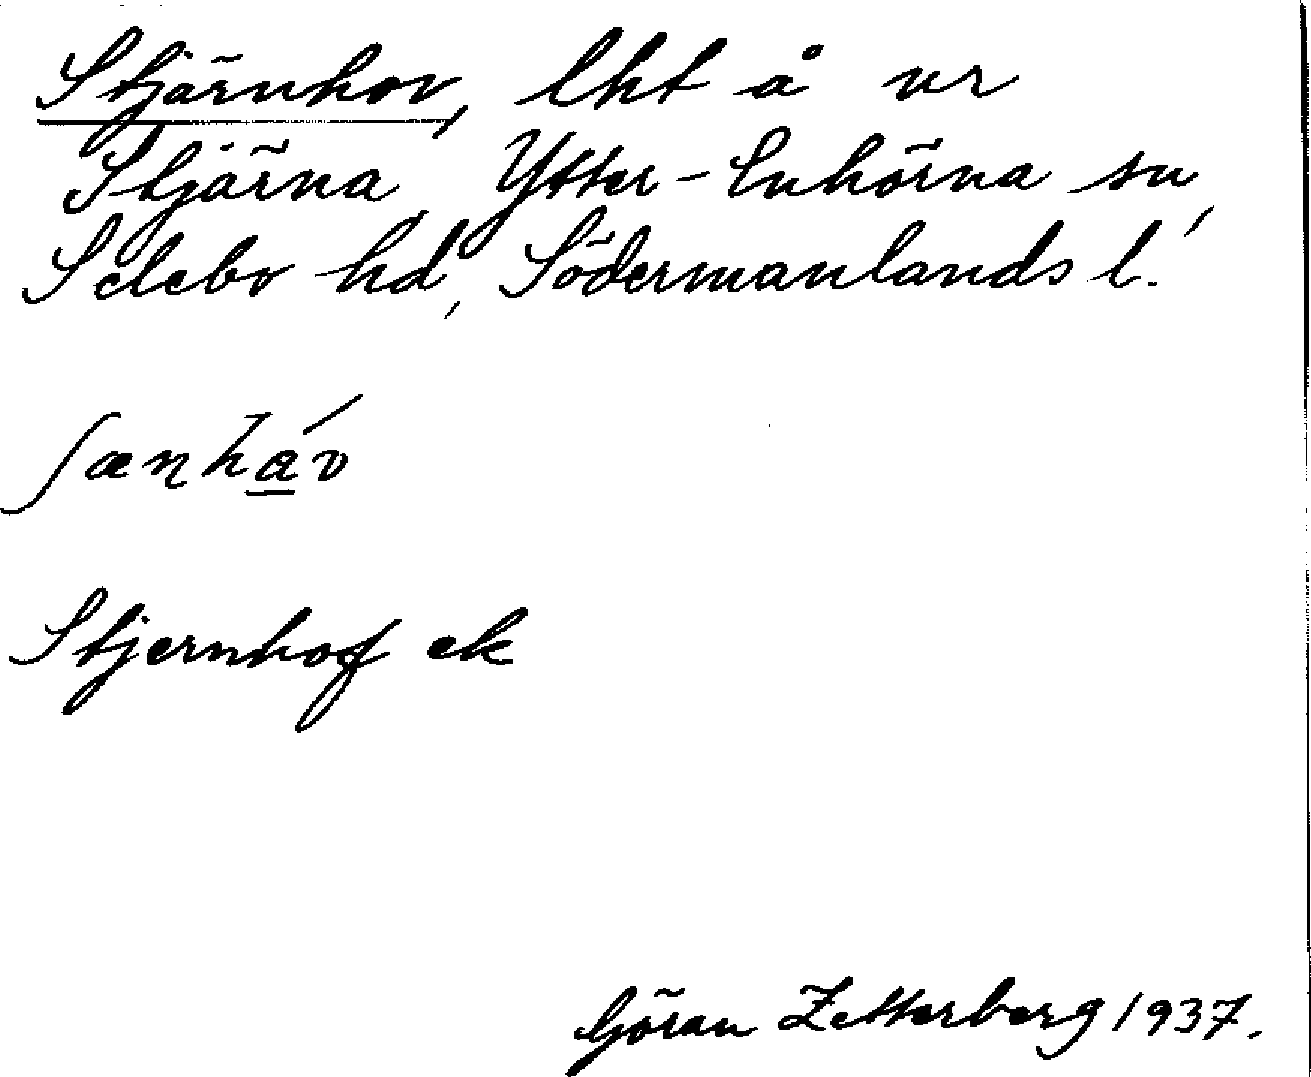 Stjärnhov, lht å nr
Stjärna, Ytter-Enhörna sn,
Selebo hd, Södermanlands l.
ʃænháv
Stjernhof ek
Göran Zetterberg 1937.